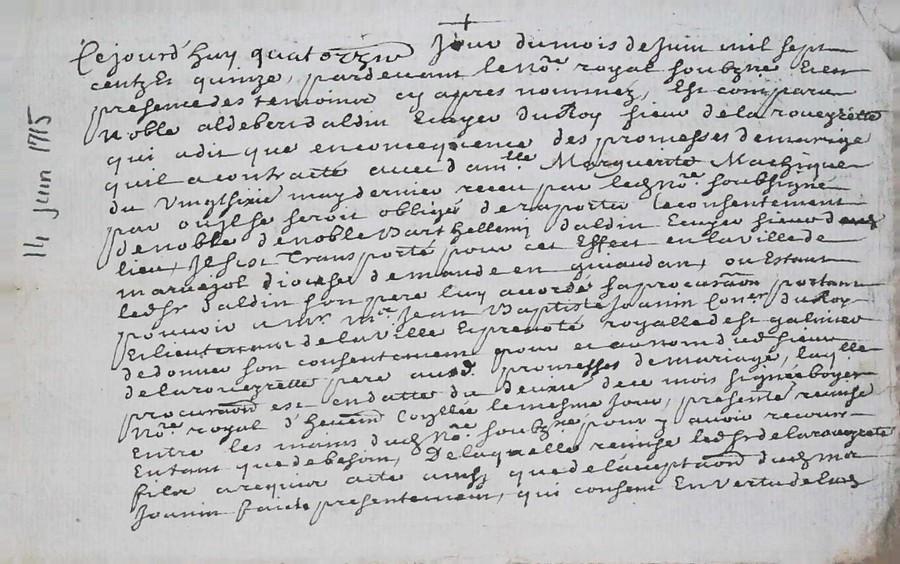 Cejourd'huy quatorzie Jour dumois de Juin mil sept
centz Et quinze, pardevant le No.re royal soubzne Et en
presence des temoins cy apres nommez, Est comparu
Noble aldebert daldin Ecuyer du Roy sieur delaroueyrette
qui adit que enconcequence des promesses demariage
quil a contracté avec dam.lle Marguerite
du vingtsixie may dernier receu par led No.re soubsigné
par ou il se seroit obligé de raporter le consentement
denoble denoble Barthellemi daldin Ecuyer sieur dud
lieu, Il s'est transporté pour cet Effect en la ville de
maruejol dioceze demande en givaudan, ou Estant
led sr daldin son pere luy a cordé sa procuraon portant
pouvoir a Mr. Me. Jean Baptiste Jouanin Con.er du Roy
Et lieutenant de la ville Et prevoté royalle de st galmier
de donner son consentement pour et au nom dud sieur
delaroueyrette pere ausd. promesses de mariage, laq.lle
procuraon est en datte du deuxie dece mois signée boyer
No.re royal d'heuement le mesme jour, presenté remise
Entre les mains dud No.re soubzné pour y avoir recours
En tant que debesoin, De laquelle remise led sr delaroueyrette
fils a requis acte aussy que del'aceptaon dud Mre
Jouanin faite presentement, qui consent En vertu delad
14 Juin 1715